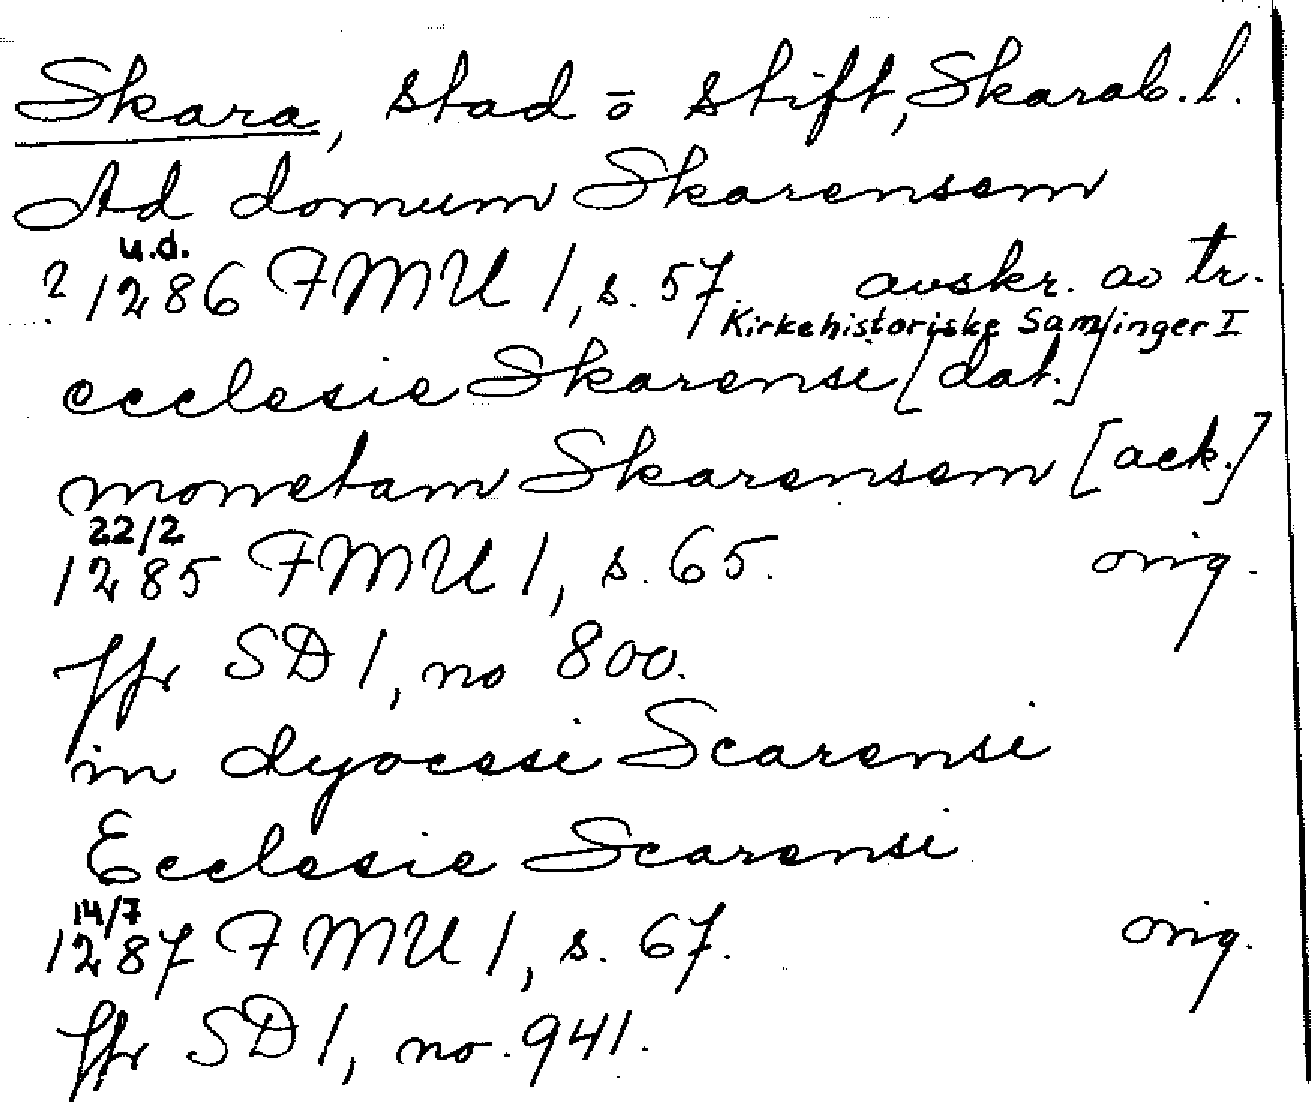 Skara, stad o stift, Skarab. l.
Ad domum Skarensem
u.d.
? 1286 FMU 1, s. 57. avskr. av tr.
Kirkehistoriske Samlinger I
ecclesie Skarensi [dat.]
monetam Skarensem [ack.]
22/2
1285 FMU 1, s. 65. orig.
Jfr SD 1, no 800.
in dyocesi Scarensi
Ecclesie Scarensi
14/7
1287 FMU 1, s. 67. orig.
Jfr SD 1, no. 941.